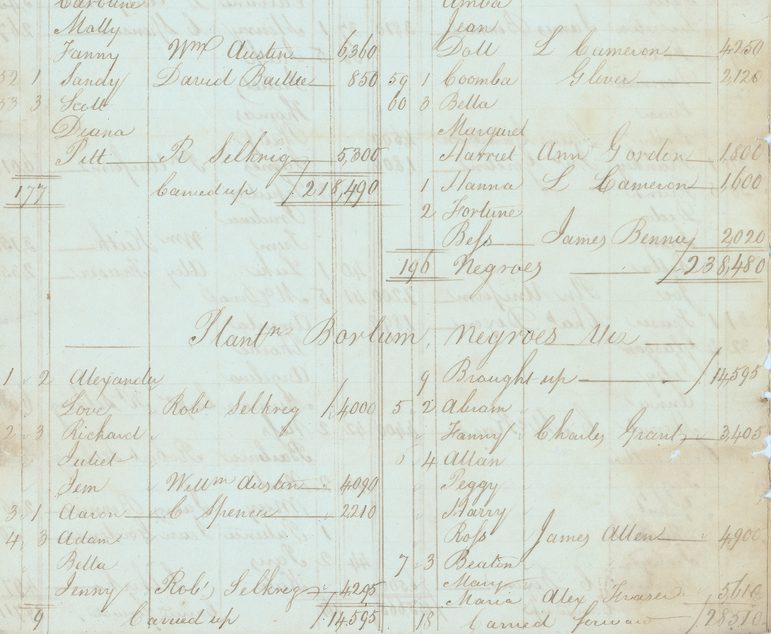 Caroline
Molly
Fanny Wm Austin 6,360
32 1 Sandy David Baillie 850
33 3 Scott
Diana
Pitt R Selkrig 5,300
177 Carried up /218,490
Amba
Jean
Doll L Cameron 4250
59 1 Coomba Glover 2,126
60 3 Bella
Margaret
Harriet Ann Gordon 1,800
1 Hanna L Cameron 1,600
2 Fortune
Bess James Benny 2,020
196 Negroes /238,480
Plantn Borlum, Negroes Viz
1 2 Alexander
Love Robt Selkreg /4000
2 3 Richard
Juliet
Jem Willm Austin 4090
3 1 Aaron C Spencer 2210
4 3 Adam
Bella
Jenny Robt Selkreg 4295
9 Carried up /14595
9 Brought up /14,595
5 2 Abram
Fanny Charles Grant 3,405
4 Allan
Peggy
Harry
Ross James Allen 4,900
7 3 Beaton
Mary
Maria Alex Fraser 5610
18 Carried forward /28510